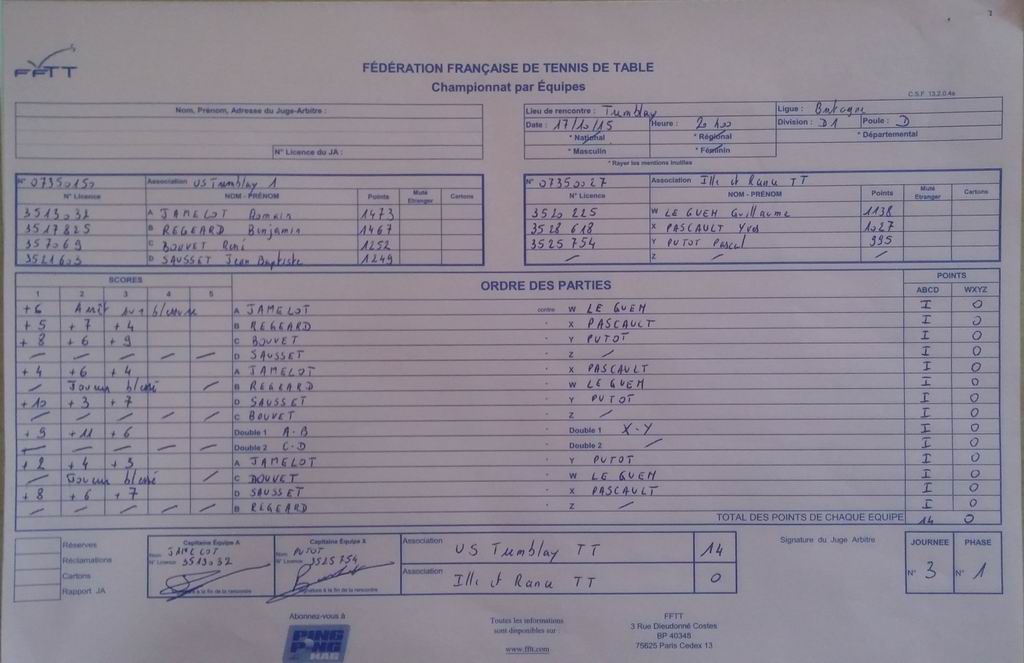 FFTT
FÉDÉRATION FRANÇAISE DE TENNIS DE TABLE
Championnat par Équipes
C.S.F. 13.2.0.4a
Nom, Prénom, Adresse du Juge-Arbitre :
N° Licence du JA :
Lieu de rencontre : Tremblay Ligue : Bretagne
Date : 17/10/15 Heure : 20h00 Division : D1 Poule : D
* National * Régional * Départemental
* Masculin * Féminin
* Rayer les mentions inutiles
N° 07350150 Association US Tremblay 1
N° Licence NOM - PRÉNOM Points Muté Etranger Cartons
3513032 A JAMELOT Romain 1473
3517825 B REGEARD Benjamin 1467
357069 C BOUVET René 1252
3521603 D SAUSSET Jean Baptiste 1249
N° 07350027 Association Ille et Rance TT
N° Licence NOM - PRÉNOM Points Muté Etranger Cartons
3520225 W LE GUEH Guillaume 1138
3528618 X PASCAULT Yves 1027
3525754 Y PUTOT Pascal 995
/ Z / /
SCORES ORDRE DES PARTIES POINTS
1 2 3 4 5 ABCD WXYZ
+6 Arrêt sur blessure A JAMELOT contre W LE GUEH I 0
+5 +7 +4 B REGEARD - X PASCAULT I 0
+8 +6 +9 C BOUVET - Y PUTOT I 0
/ / / / / D SAUSSET - Z / I 0
+4 +6 +4 A JAMELOT - X PASCAULT I 0
/ Joueur blessé / B REGEARD - W LE GUEH I 0
+10 +3 +7 D SAUSSET - Y PUTOT I 0
/ / / / / C BOUVET - Z / I 0
+9 +11 +6 Double 1 A-B - Double 1 X-Y I 0
/ / / / / Double 2 C-D - Double 2 / I 0
+2 +4 +3 A JAMELOT - Y PUTOT I 0
/ Joueur blessé / C BOUVET - W LE GUEH I 0
+8 +6 +7 D SAUSSET - X PASCAULT I 0
/ / / / / B REGEARD - Z / I 0
TOTAL DES POINTS DE CHAQUE EQUIPE 14 0
Réserves
Réclamations
Cartons
Rapport JA
Capitaine Équipe A
Nom JAMELOT
N° Licence 3513032
Signature à la fin de la rencontre
Capitaine Équipe X
Nom PUTOT
N° Licence 3525754
Signature à la fin de la rencontre
Association US Tremblay TT 14
Association Ille et Rance TT 0
Signature du Juge Arbitre
JOURNEE PHASE
N° 3 N° 1
Abonnez-vous à
PING PONG MAG
Toutes les informations
sont disponibles sur :
www.fftt.com
FFTT
3 Rue Dieudonné Costes
BP 40348
75625 Paris Cedex 13